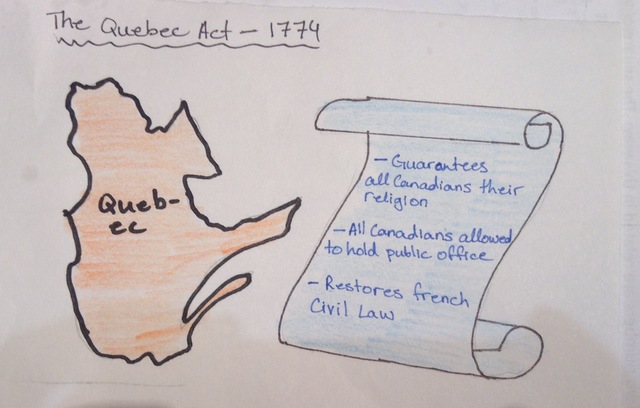 The Quebec Act - 1774
Queb-
ec
- Guarantees
all Canadians their
religion
- All Canadians allowed
to hold public office
- Restores french
Civil Law